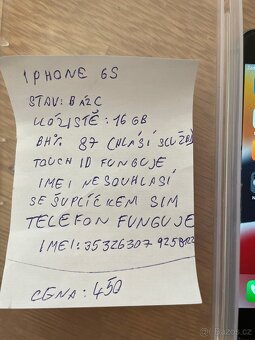 IPHONE 6S
STAV: B AŽ C
ÚLOŽIŠTĚ: 16 GB
BH%: 87 (HLÁSÍ
TOUCH ID FUNGUJE
IMEI NESOUHLASÍ
SE ŠUPLÍČKEM SIM
TELEFON FUNGUJE
IMEI: 35326307
CENA: 450